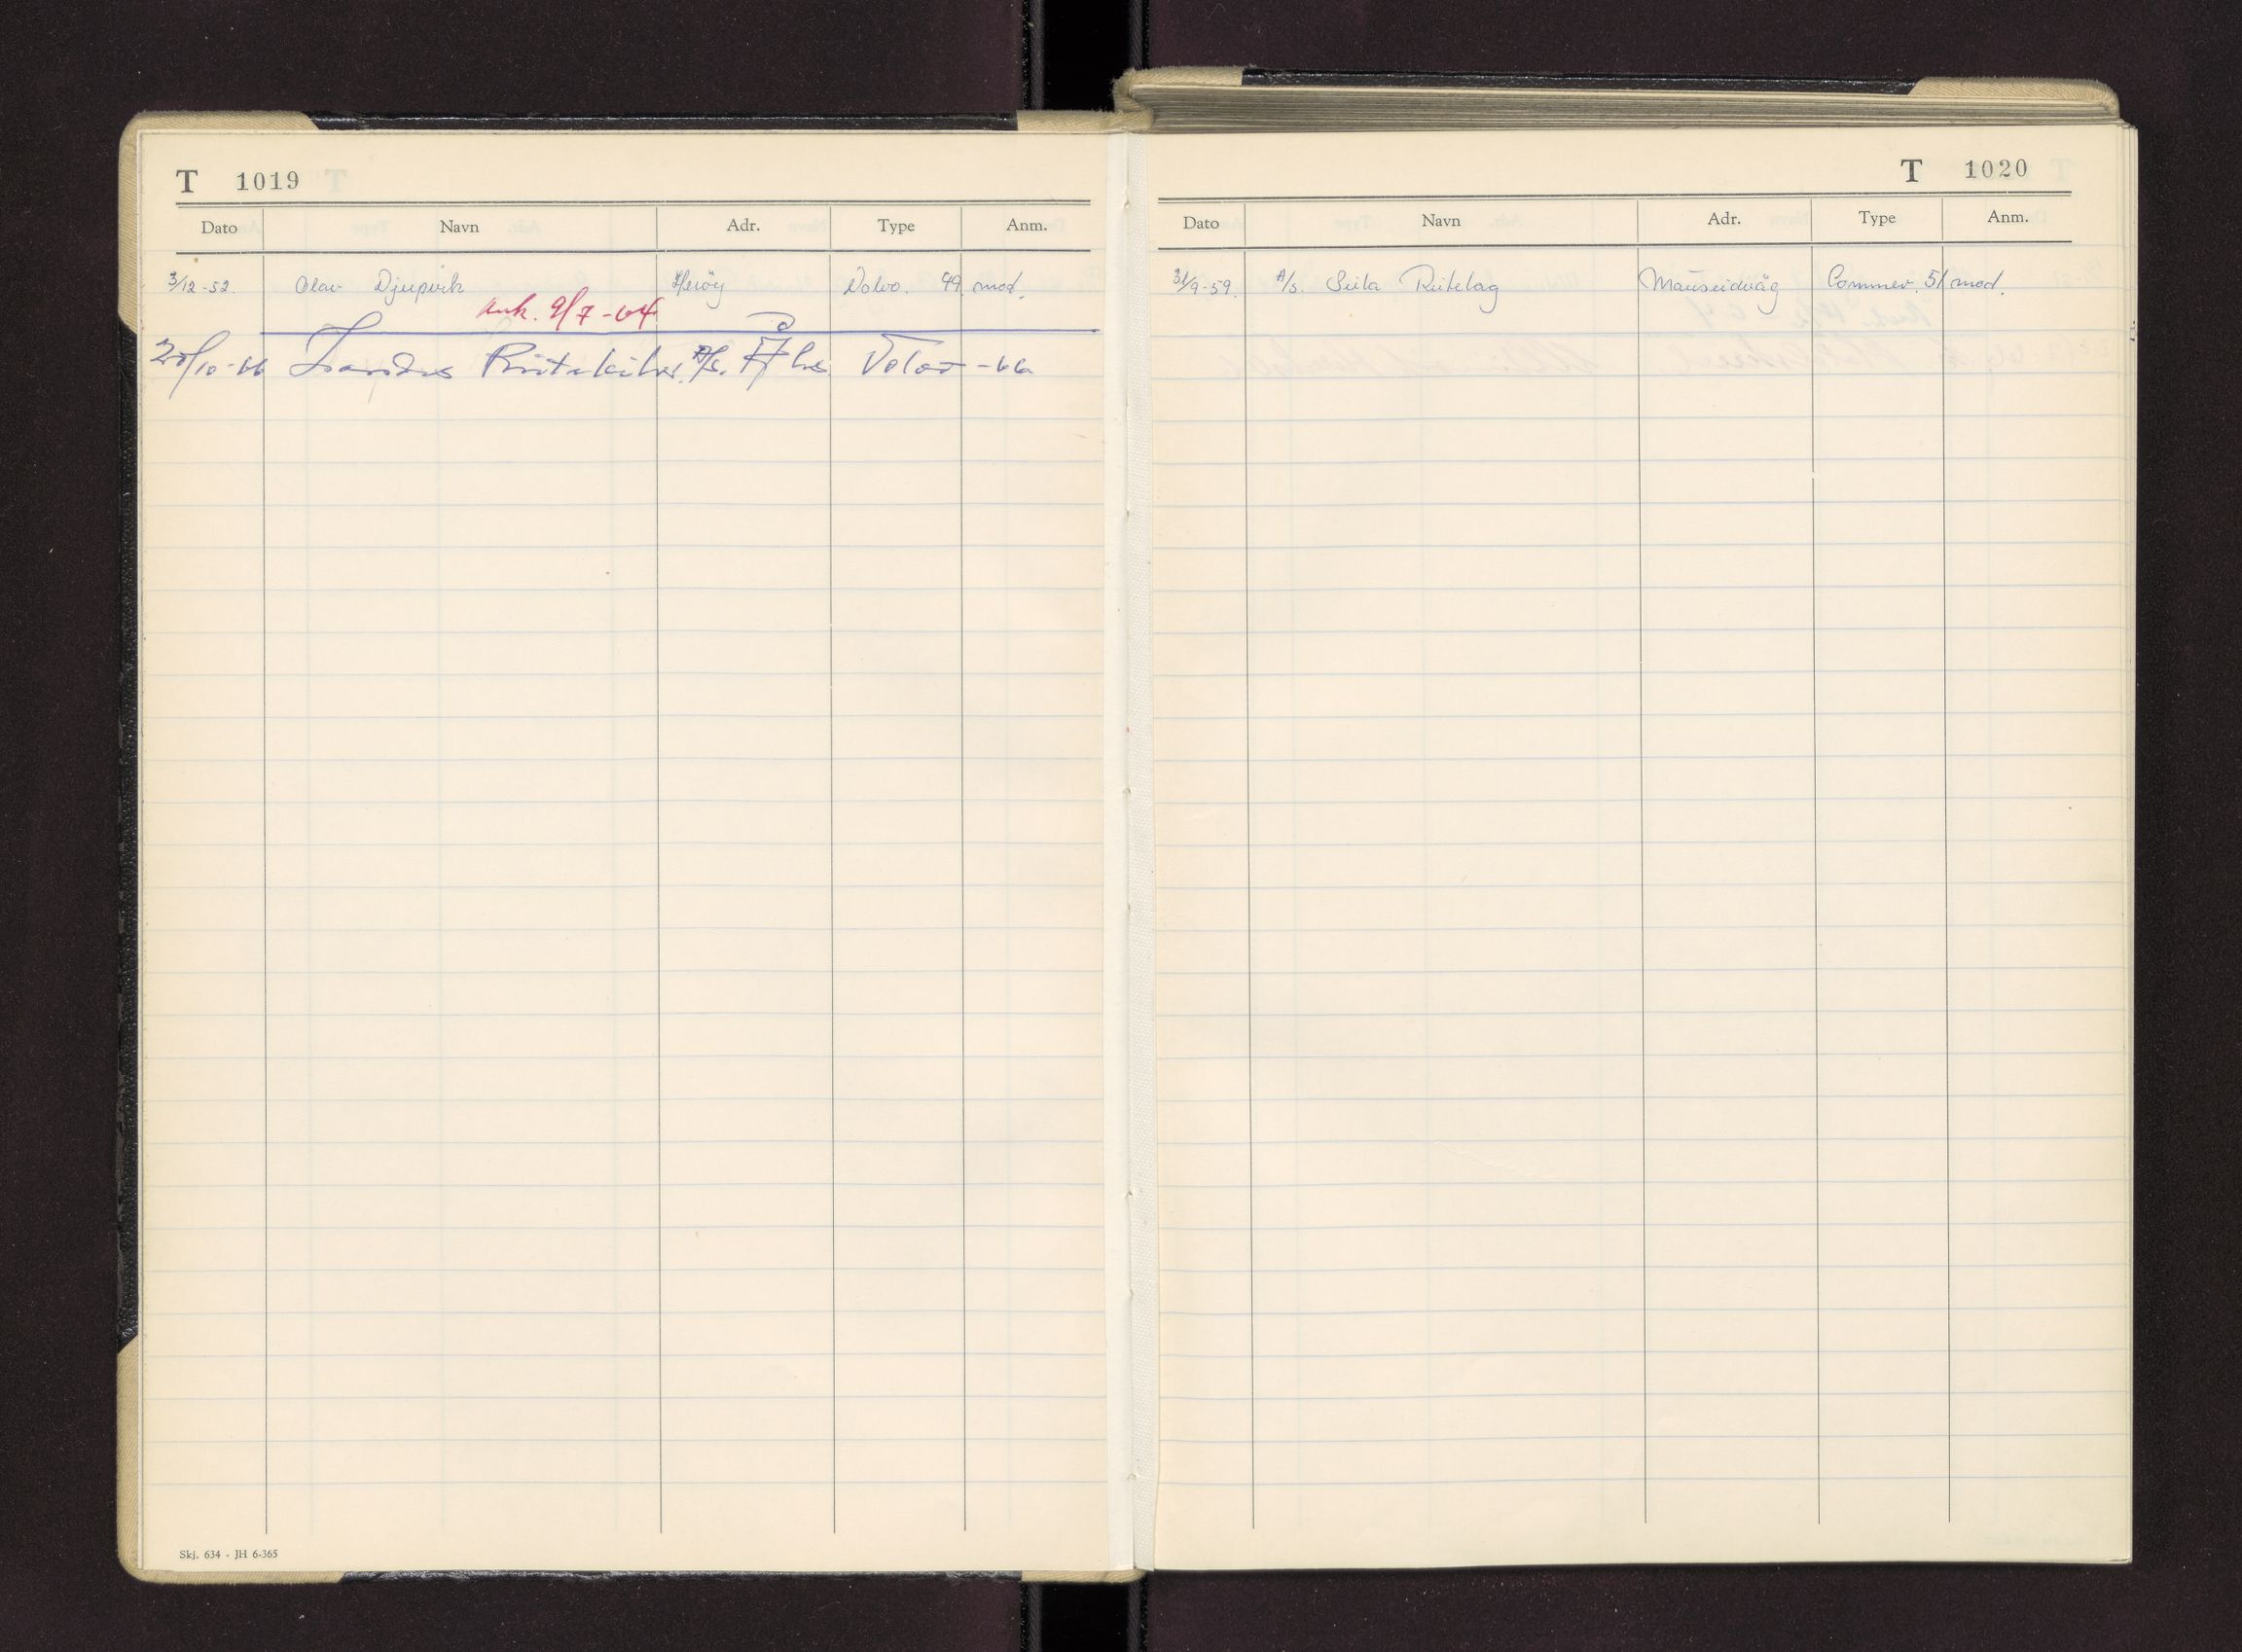 T 1019
Dato Navn Adr. Type Anm.
3/12-52. Olav Djupvik Heröy Volvo. 49 mod.
Avh. 9/7-64
/10-66 A/s. Volvo -66
Skj. 634 - JH 6-365
T 1020
Dato Navn Adr. Type Anm.
/9-59. A/s. Sula Rutelag Mauseidvåg Commer. 51 mod.